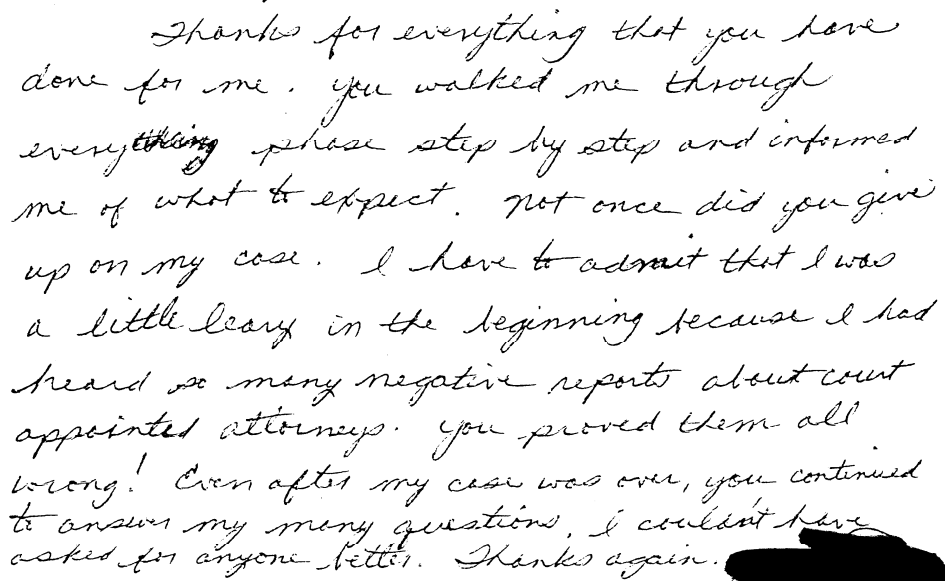 Thanks for everything that you have
done for me. You walked me through
every phase step by step and informed
me of what to expect. Not once did you give
up on my case. I have to admit that I was
a little leary in the beginning because I had
heard so many negative reports about court
appointed attorneys. You proved them all
wrong! Even after my case was over, you continued
to answer my many questions. I couldn't have
asked for anyone better. Thanks again.